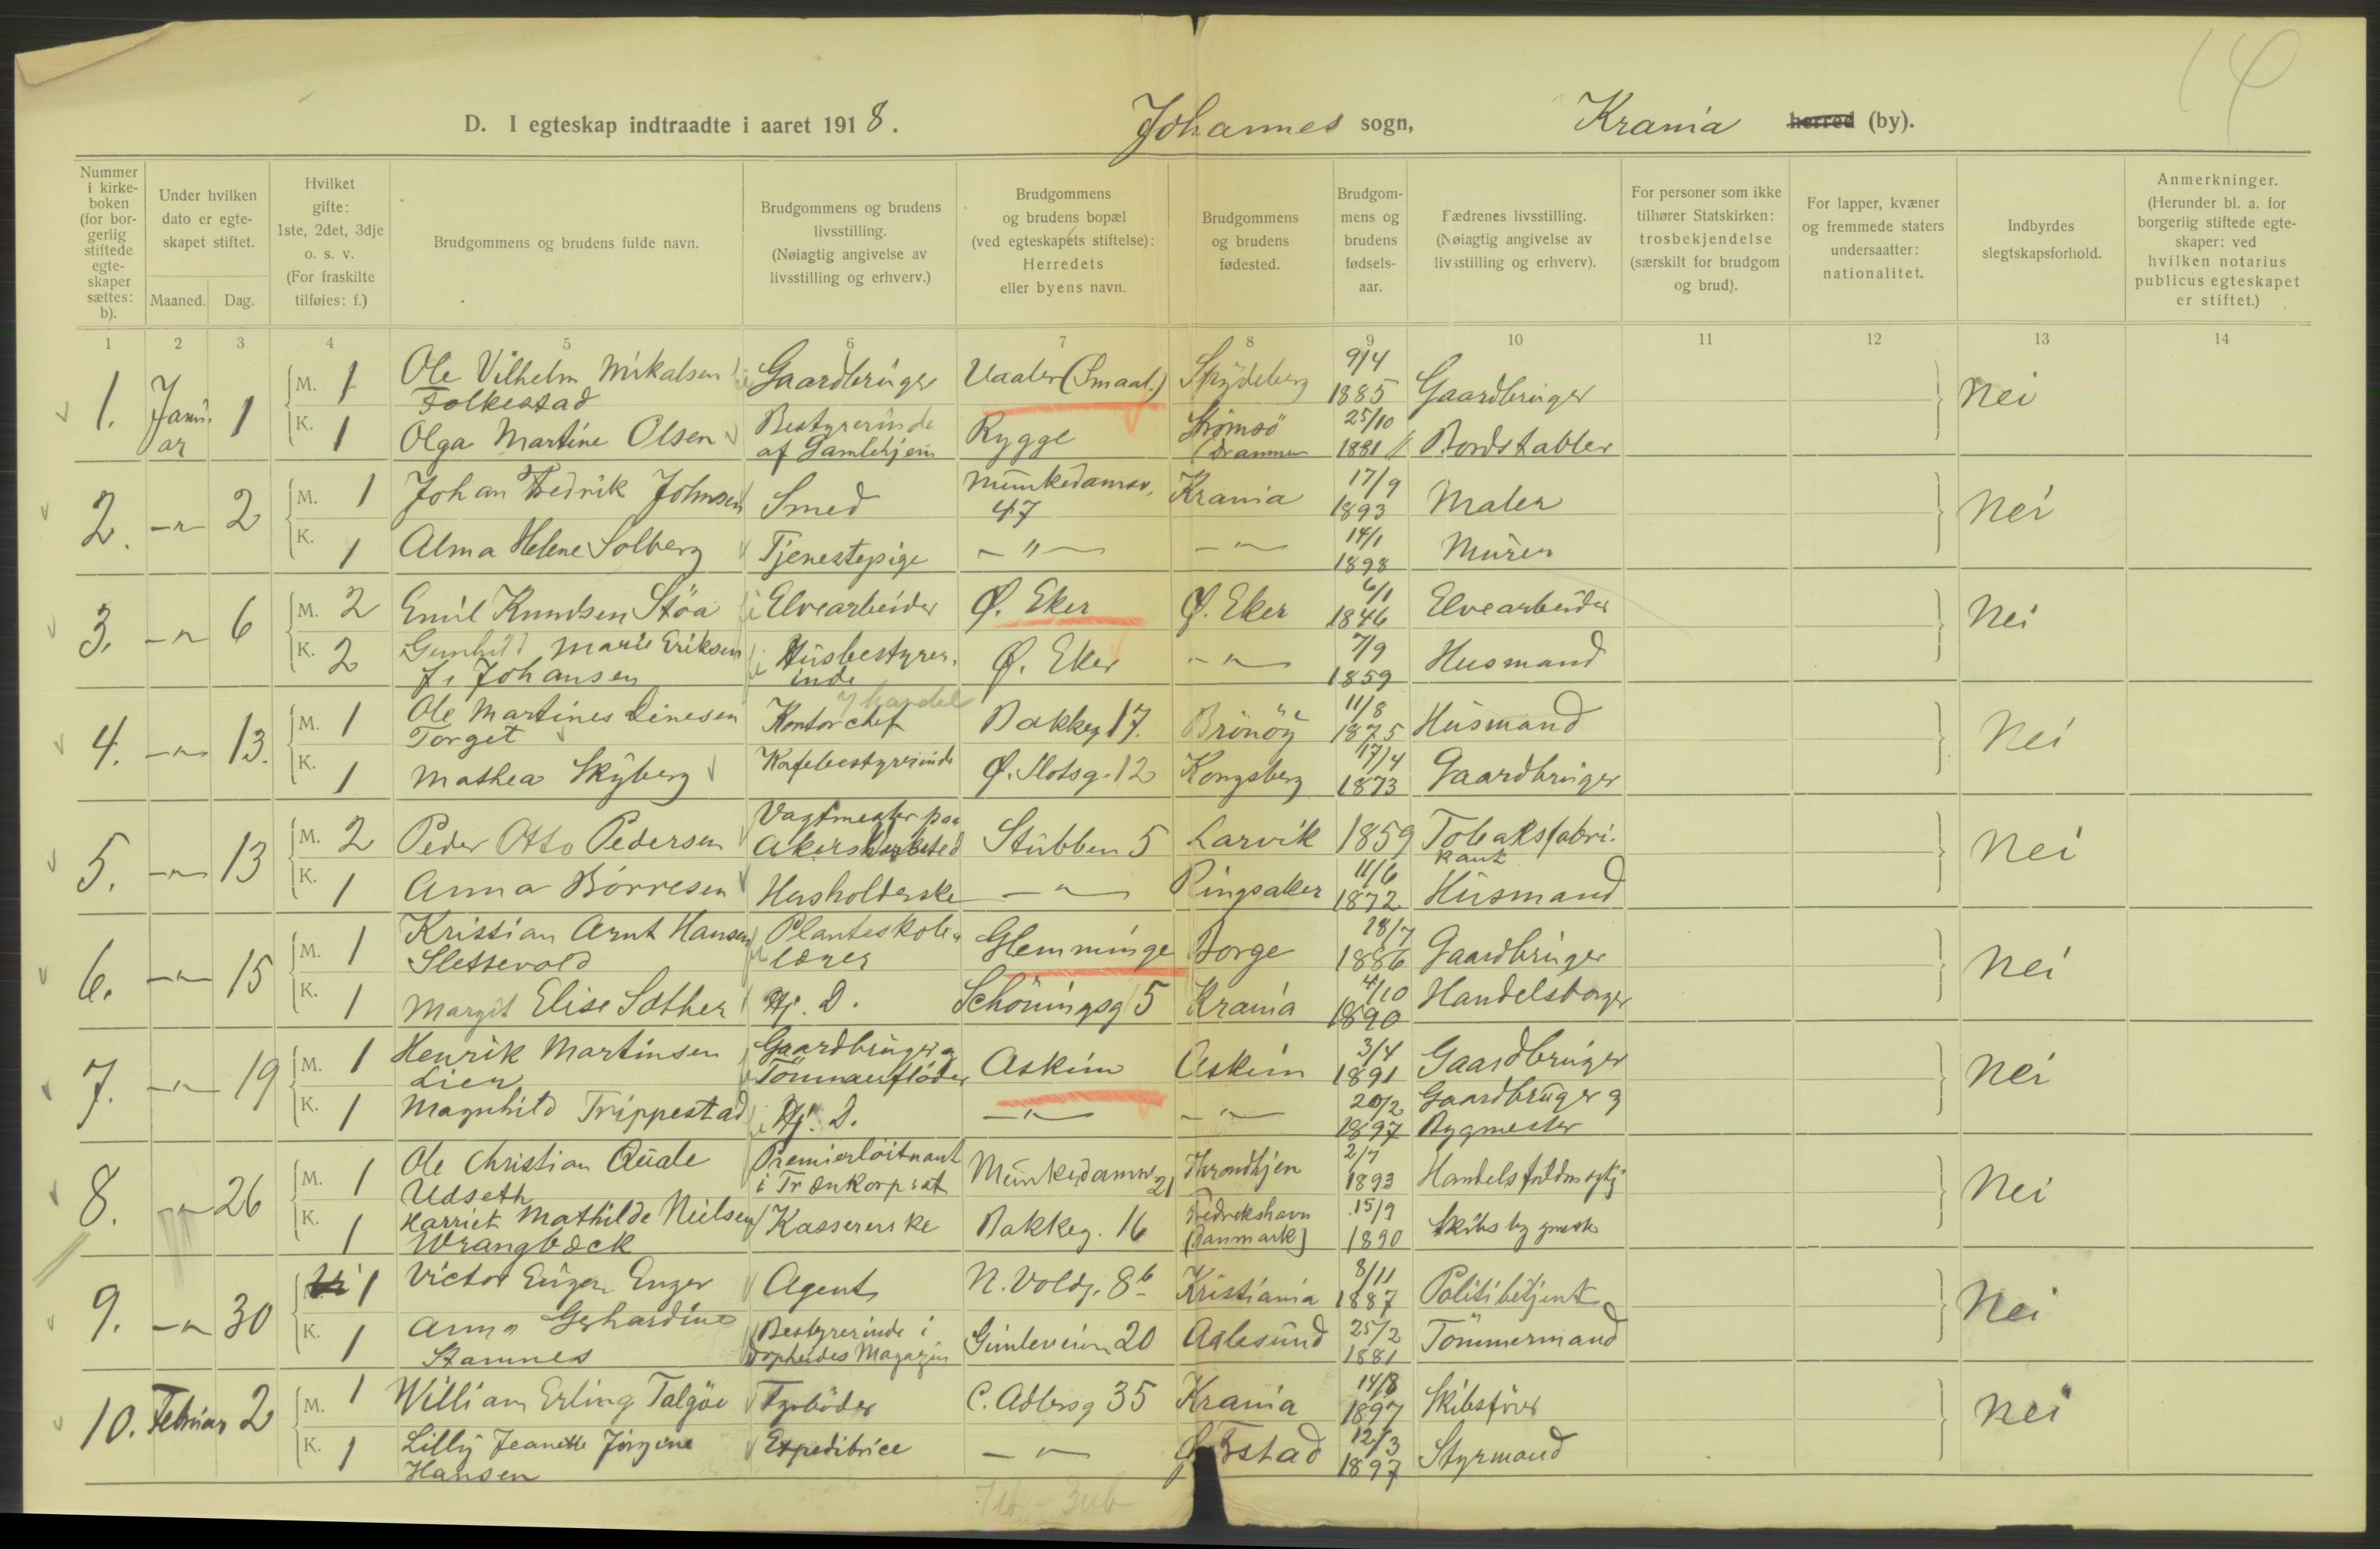 D. I egteskap indtraadte i aaret 1918. Johannes sogn, Krania herred (by).
Nummer i kirkeboken (for borgerlig stiftede egteskaper sættes: b).
Under hvilken dato er egteskapet stiftet.
Maaned. Dag.
Hvilket gifte: 1ste, 2det, 3dje o. s. v. (For fraskilte tilføies: f.)
Brudgommens og brudens fulde navn.
Brudgommens og brudens livsstilling. (Nøiagtig angivelse av livsstilling og erhverv.)
Brudgommens og brudens bopæl (ved egteskapets stiftelse): Herredets eller byens navn.
Brudgommens og brudens fødested.
Brudgommens og brudens fødselsaar.
Fædrenes livsstilling. (Nøiagtig angivelse av livsstilling og erhverv).
For personer som ikke tilhører Statskirken: trosbekjendelse (særskilt for brudgom og brud).
For lapper, kvæner og fremmede staters undersaatter: nationalitet.
Indbyrdes slegtskapsforhold.
Anmerkninger. (Herunder bl. a. for borgerlig stiftede egteskaper: ved hvilken notarius publicus egteskapet er stiftet.)
1 2 3 4 5 6 7 8 9 10 11 12 13 14
1. Januar 1 M. 1 Ole Vilhelm Mikalsen Folkestad Gaardbruger Vaaler (Smaal.) Spydeberg 9/4 1885 Gaardbruger Nei
K. 1 Olga Martine Olsen Bestyrerinde af Gamlehjem Rygge Strömsö (Drammen 25/10 1881 Bordstabler
2. -"- 2 M. 1 Johan Fredrik Johnsen Smed Munkedamsv. 47 Krania 17/9 1893 Maler Nei
K. 1 Alma Helene Solberg Tjenestepige -"- -"- 14/1 1898 Murer
3. -"- 6 M. 2 Emil Knudsen Stöa Elvearbeider Ø. Eker Ø. Eker 6/1 1846 Elvearbeider Nei
K. 2 Gunhild Marie Eriksen f. Johansen Husbestyrerinde Ø. Eker -"- 7/9 1859 Husmand
4. -"- 13. M. 1 Ole Martines Dinesen Torget Kontorchef handel Bakkeg 17. Brönöy 11/8 1875 Husmand Nei
K. 1 Mathea Skyberg Kafebestyrerinde Ø. Slotsg. 12 Kongsberg 17/4 1873 Gaardbruger
5. -"- 13 M. 2 Peder Otto Pedersen Vagtmester paa Akers Stubben 5 Larvik 1859 Tobaksfabrikant Nei
K. 1 Anna Börresen Husholderske -"- Ringsaker 11/6 1872 Husmand
6. -"- 15 M. 1 Kristian Arnt Hansen Slettevold Planteskolelærer Glemminge Borge 28/7 1886 Gaardbruger Nei
K. 1 Margit Elise Sæther Hj. D. Schöningsg 5 Krania 4/10 1890 Handelsborger
7. -"- 19 M. 1 Henrik Martinsen Lien Gaardbruger og Tömmerflöder Askim Askim 3/4 1891 Gaardbruger Nei
K. 1 Magnhild Trippestad Hj. D. -"- -"- 20/2 1897 Gaardbruger og Bygmester
8. -"- 26 M. 1 Ole Christian Quale Udseth Premierlöitnant i Trænkorpset Munkedamsv 21 Throndhjem 2/7 1893 Handelsfuldmægtig Nei
K. 1 Harriet Mathilde Nielsen Wrangbæck Kassererske Bakkeg. 16 Fredrekshavn (Danmark) 15/9 1890 Skibsbygmester
9. -"- 30 M. 1 Victor Eugen Enger Agent N. Voldg. 8b Kristiania 8/11 1887 Politibetjent Nei
K. 1 Anna Gerhardine Stamnes Bestyrerinde i Magazin Gimleveien 20 Aalesund 25/2 1881 Tömmermand
10. Februar 2 M. 1 William Erling Talgöe Fyrböder C. Adlersg 35 Krania 14/8 1897 Skibsförer Nei
K. 1 Lilly Jeanette Jörgine Hansen Expeditrice -"- 12/3 1897 Styrmand